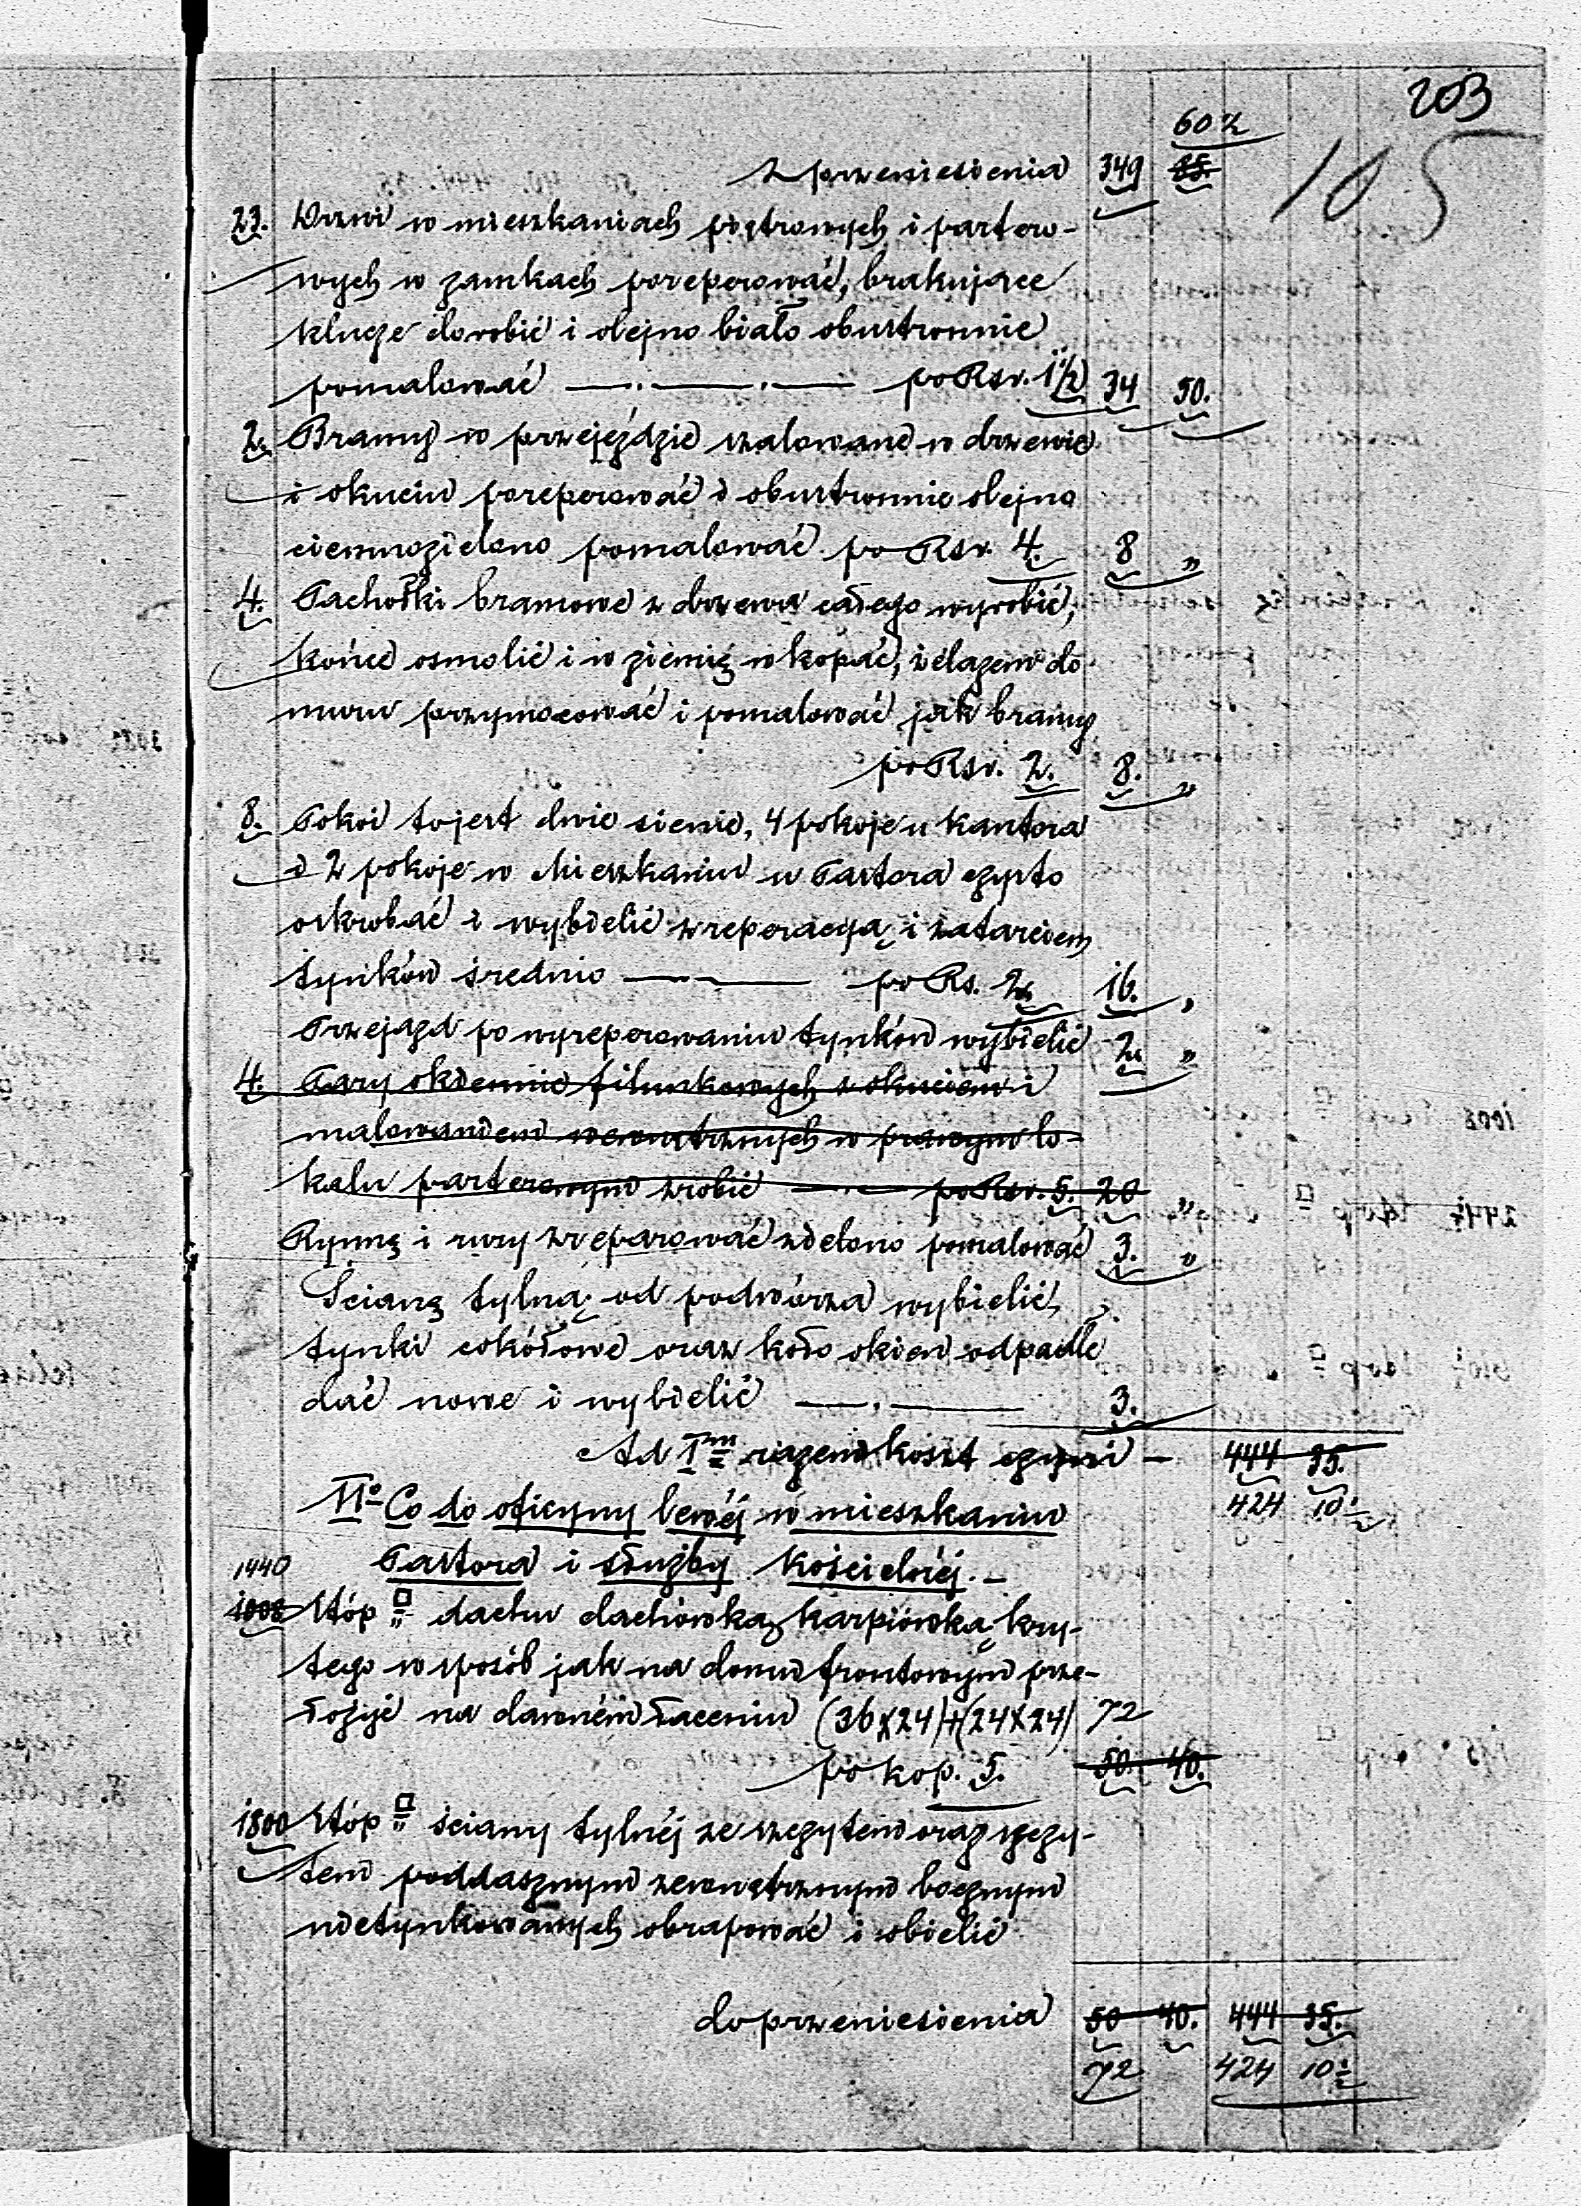 203
105
60½
z przeniesienia 349 85.
23. Drzwi w mieszkaniach piętrowych i partero-
wych w zamkach poreperować, brakujące
klucze dorobić i olejno biało obustronnie
pomalować —.—.— po Rsr. 1½ 34 50.
2. Bramy w przejeździe szalowane w drzewie
i okuciu poreperować i obustronnie olejno
ciemnozielono pomalować po Rsr. 4. 8 „
4. Pachołki bramowe z drzewa całego wyrobić,
końce osmolić i w ziemię wkopać, żelazem do
muru przymocować i pomalować jak bramy
po Rsr. 2. 8. „
8. Pokoi to jest dwie sienie, 4 pokoje u kantora
i 2 pokoje w Mieszkaniu u Pastora czysto
oskrobać i wybielić z reperacyą i zatarciem
tynków średnio —— po Rs. 2. 16. „
Przejazd po wyreperowaniu tynków wybielić 2. „
4. Pary okiennic filunkowych z okuciem i
malowaniem wewnętrznych w prawym lo-
kalu parterowym zrobić —— po Rsr. 5. 20 „
Rynnę i rury zreparować zielono pomalować 3. „
Ścianę tylną od podwórza wybielić,
tynki cokółowe oraz koło okien odpadłe
dać nowe i wybielić —.— 3.
Ad I<sup>m</sup> razem koszt czyni — 444 35.
424 10½
II° Co do oficyny lewéj w mieszkaniu
Pastora i służby kościelnéj. —
1440
1008 Stóp □ dachu dachówką karpiówką kry-
tego w sposób jak na domu frontowym prze-
łożyć na dawném łaceniu (36×24)+(24×24) 72
po kop. 5. 50. 40.
1800 Stóp □ ściany tylnéj ze szczytem oraz szczy-
tem poddasznym zewnętrznym bocznym
nietynkowanych obrapować i obielić
do przeniesienia 50 40. 444 35.
72 424 10½